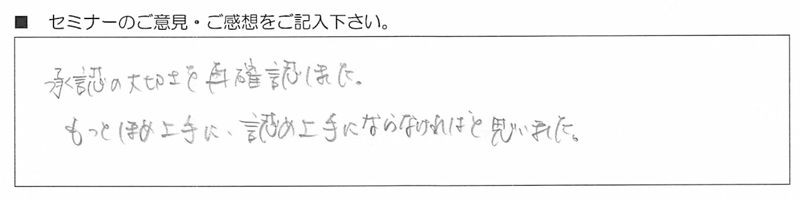 ■ セミナーのご意見・ご感想をご記入下さい。
承認の大切さを再確認しました。
もっとほめ上手に、認め上手にならなければと思いました。